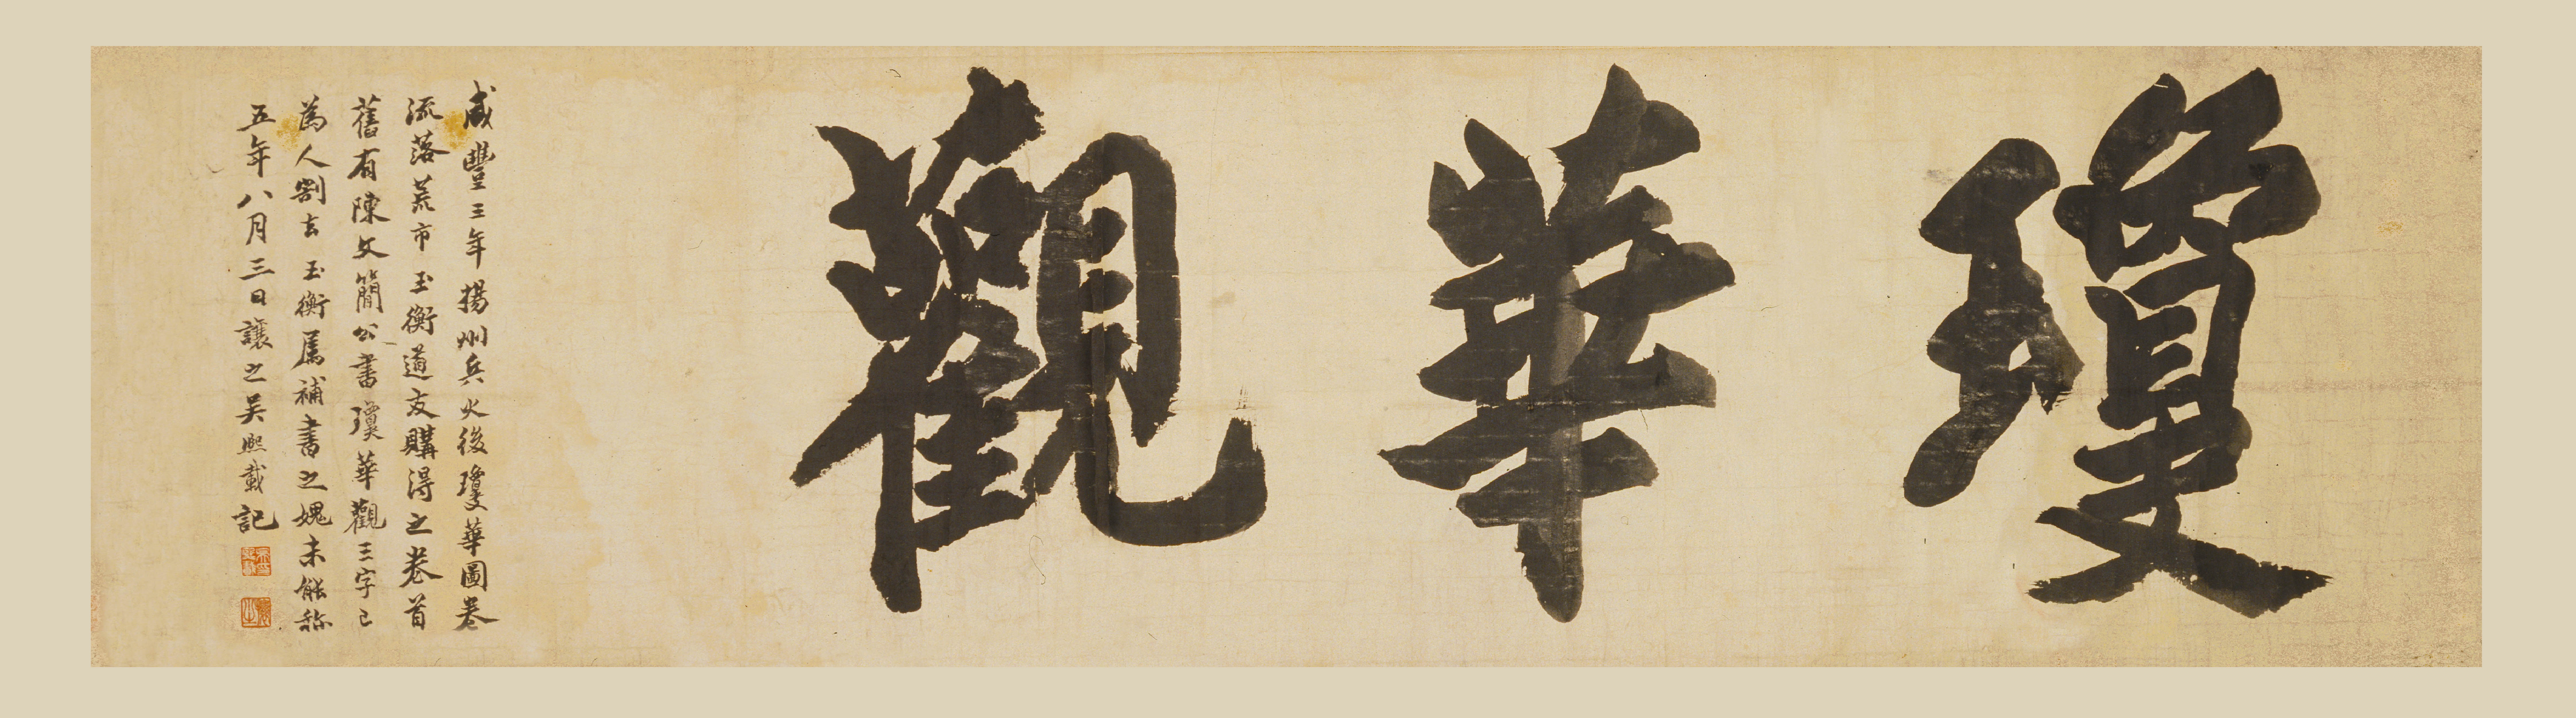 瓊華觀
咸豐三年揚州兵火後瓊華圖卷
流落荒市玉衡道友購得之卷首
舊有陳文簡公書瓊華觀三字已
為人割去玉衡屬補書之媿未能称
五年八月三日讓之吴熙載記